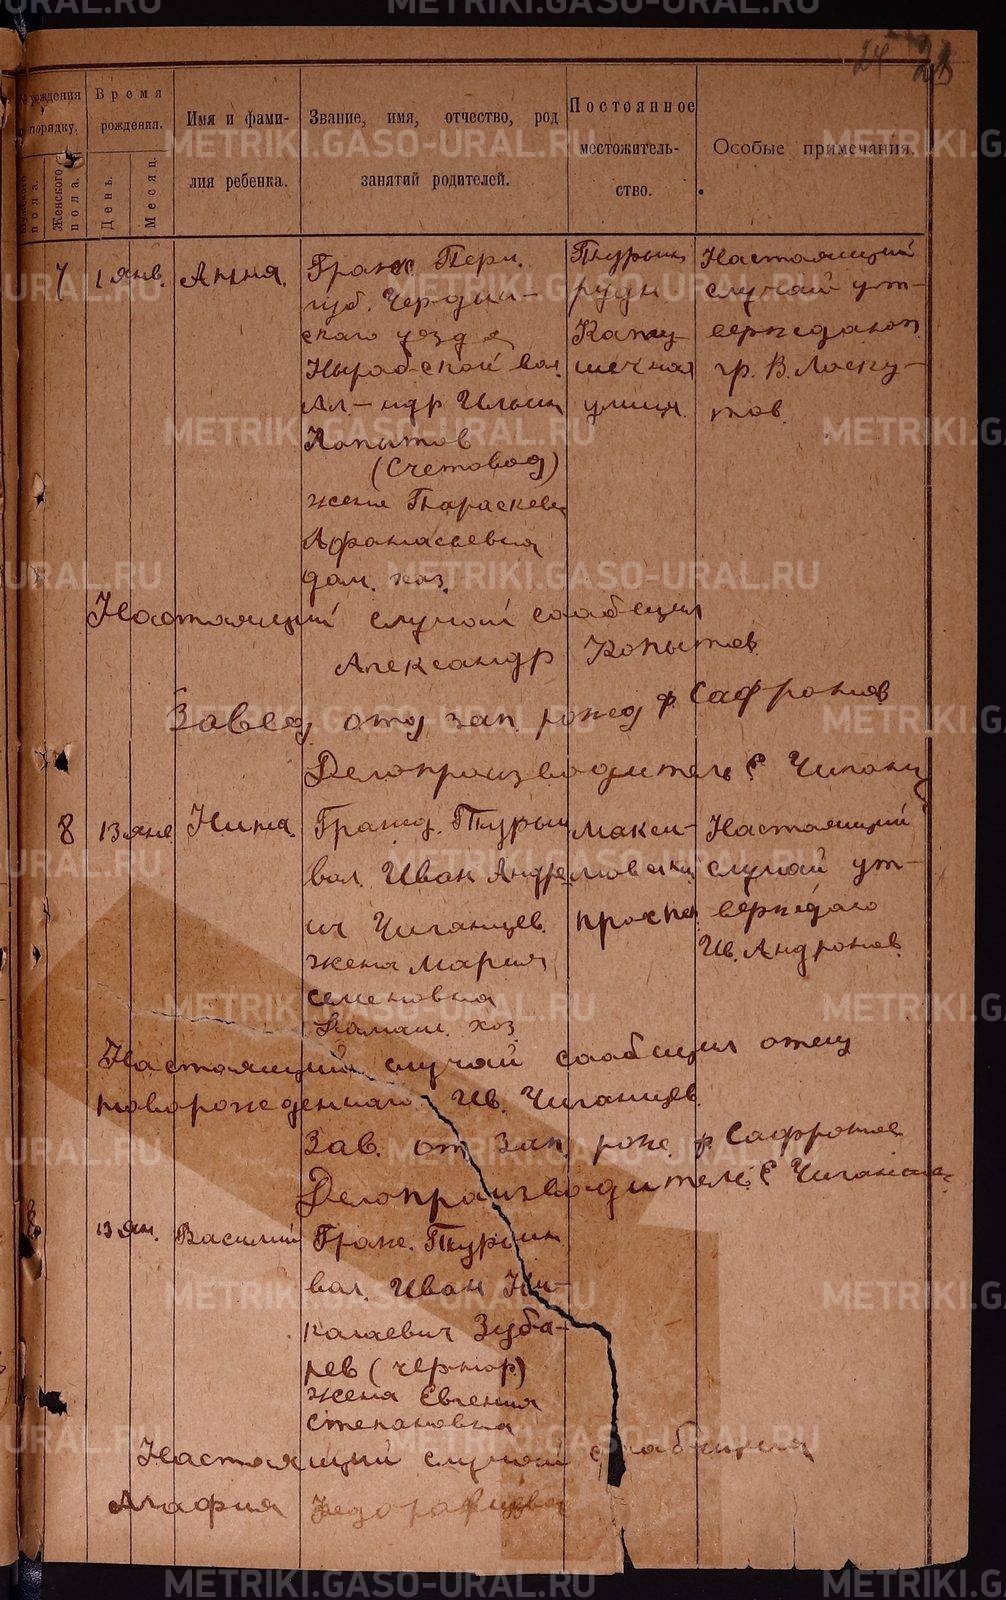 METRIKI.GASO-URAL.RU
24
рождения
порядку.
Мужского пола.
Женского пола.
Время
рождения.
День.
Месяц.
Имя и фами-
лия ребенка.
Звание, имя, отчество, род
занятий родителей.
Постоянное
местожитель-
ство.
Особые примечания.
7
1 янв.
Анна.
Граж. Перм.
губ. Чердын-
скаго уезда
Ныробской вол.
Ал-ндр Ильич
Копытов
(Счетовод)
жена Параскева
Афанасьевна
дом. хоз.
Турьин
рудн
улица.
Настоящий
случай ут-
верждают
гр. В. Лоску-
тов.
Настоящий случай сообщил
Александр Копытов.
Завед отд зап рожд ф. Сафронов
Делопроизводитель Е
8
13 янв
Нина.
Гражд. Турьин
вол. Иван Андре
ич Чиганцев.
жена Мария
семеновна
домаш. хоз
Настоящий
случай ут-
верждаю
Ив. Андронов.
Настоящий случай сообщил отец
новорожденнаго Ив. Чиганцев.
Зав. от. Зап. рож. ф. Сафронов
Делопроизводитель Е
13 ян.
Василий
Граж. Турьин
вол. Иван Ни-
колаевич Зуба-
рев (чернор)
жена Евгения
степановна
Настоящий случай сообщила
Агафия